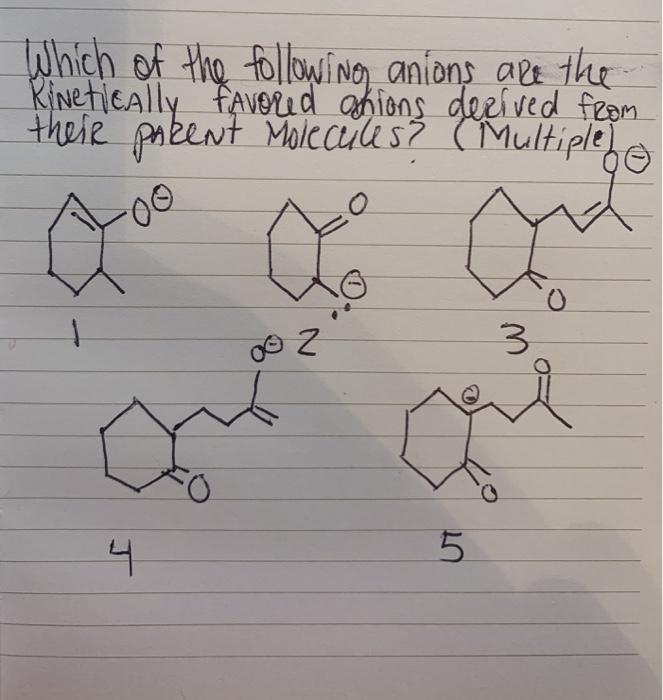 Which of the following anions are the
kinetically favored anions derived from
their parent molecules? (Multiple)
O⊖
O⊖
O
⊖
O
1
2
3
O⊖
O
⊖
O
O
4
5